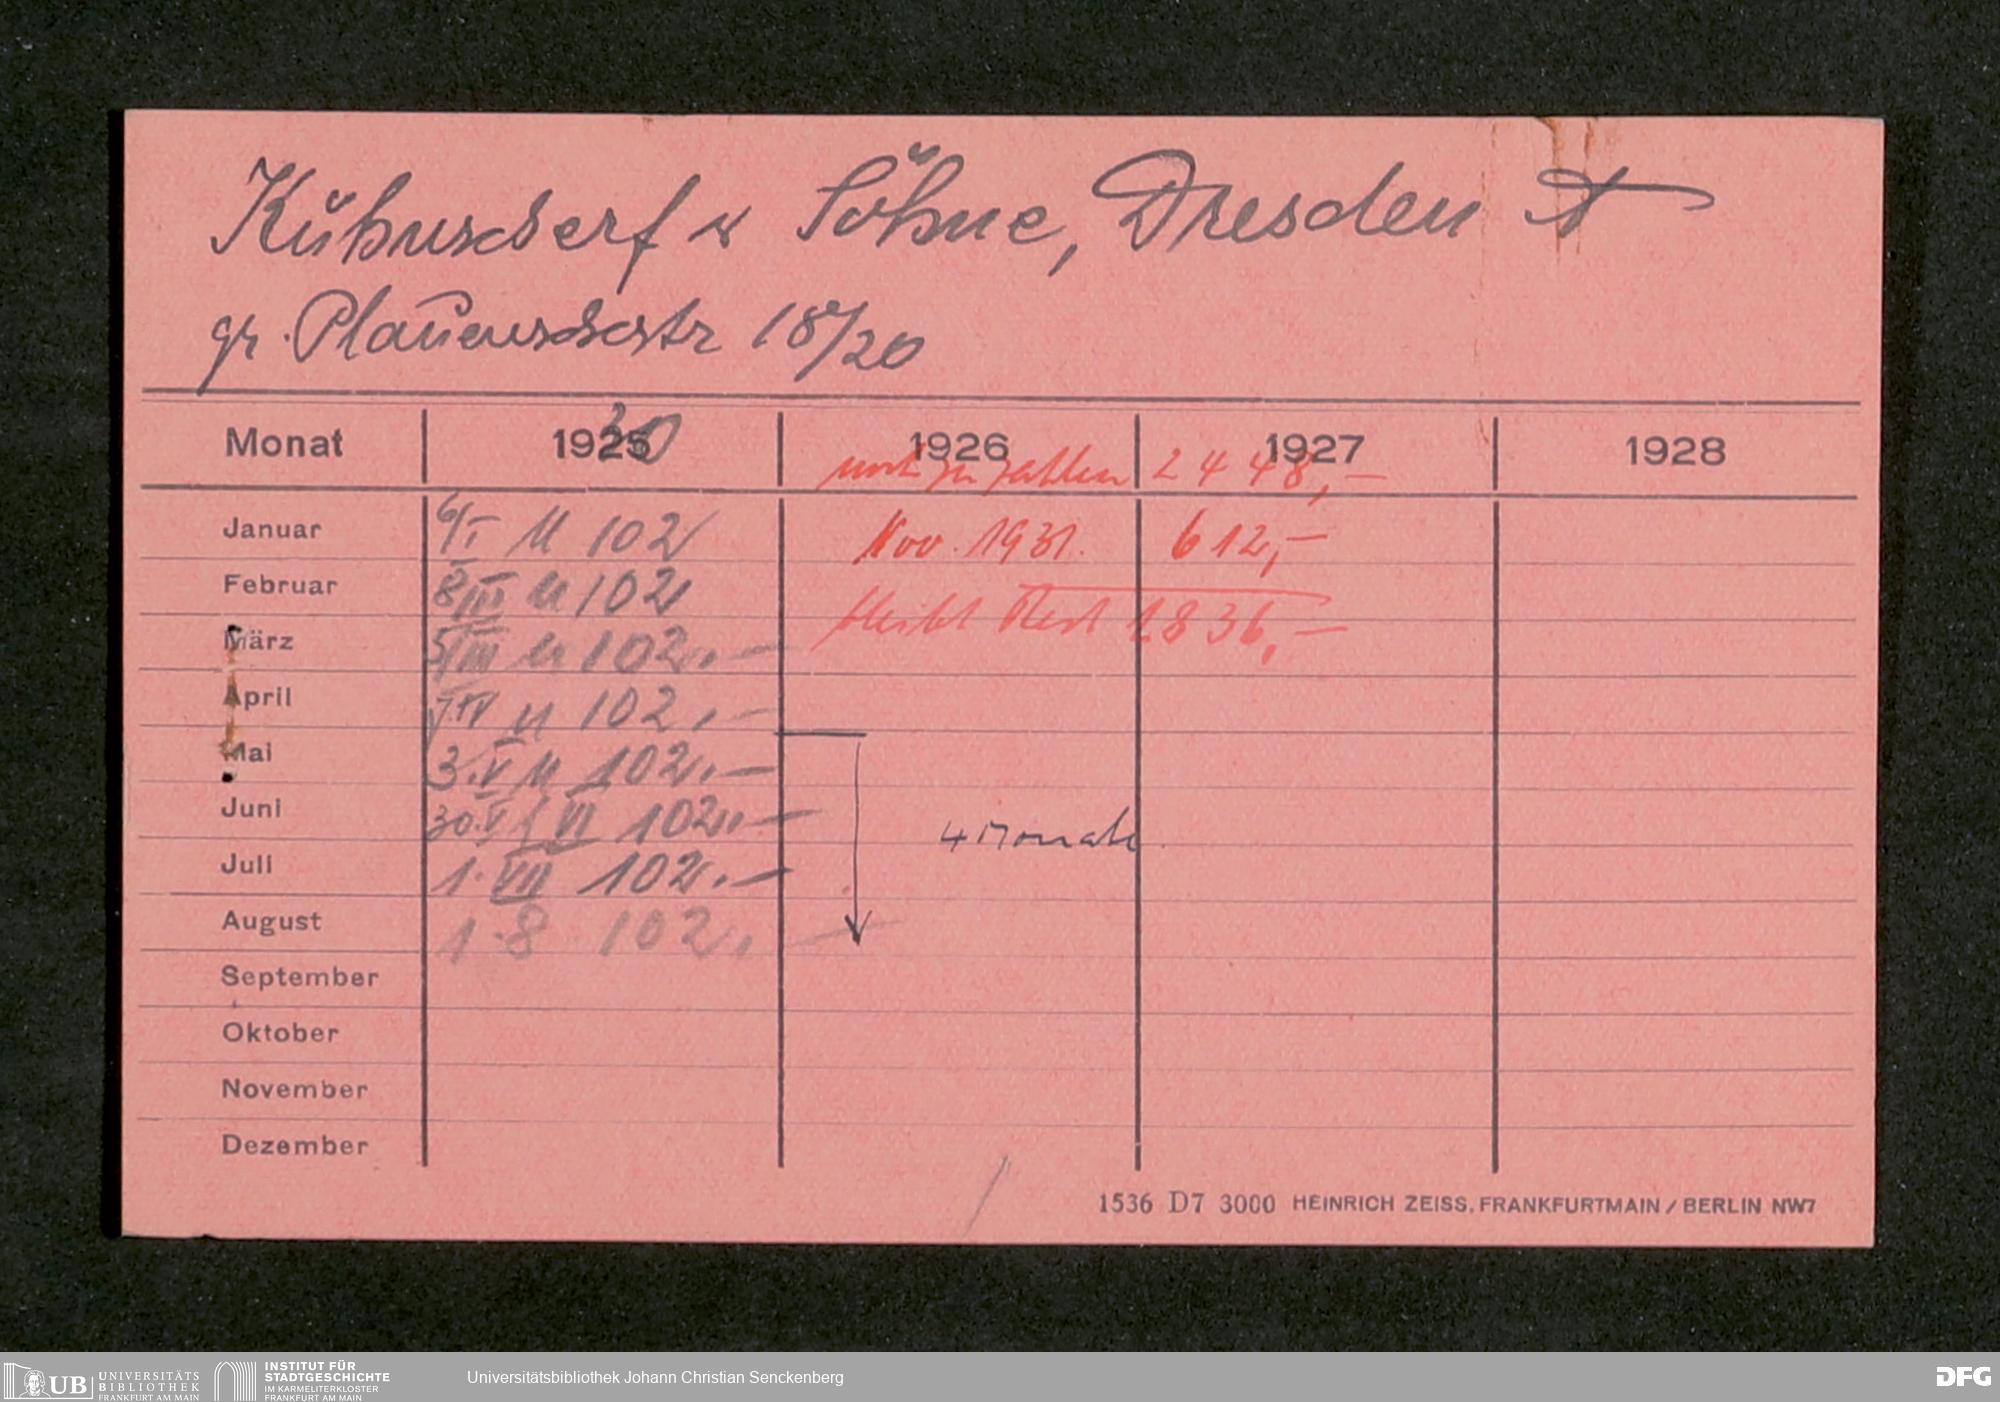 Kühnscherf u Söhne, Dresden A
gr. Plauenschestr 18/20
Monat 1930 1926 1927 1928
noch zu zahlen 2448,-
Januar 6/I M 102 Nov. 1931. 612,-
Februar 8/III M 102 bleibt Rest 1836,-
März 5/III M 102,-
April 7.IV M 102,-
Mai 3.V M 102.-
Juni 30.V / VI 102.- 4 Monate
Juli 1.VII 102.-
August 1.8. 102.-
September
Oktober
November
Dezember
1536 D7 3000 HEINRICH ZEISS, FRANKFURTMAIN / BERLIN NW7
UB UNIVERSITÄTS BIBLIOTHEK FRANKFURT AM MAIN
INSTITUT FÜR STADTGESCHICHTE IM KARMELITERKLOSTER FRANKFURT AM MAIN
Universitätsbibliothek Johann Christian Senckenberg
DFG